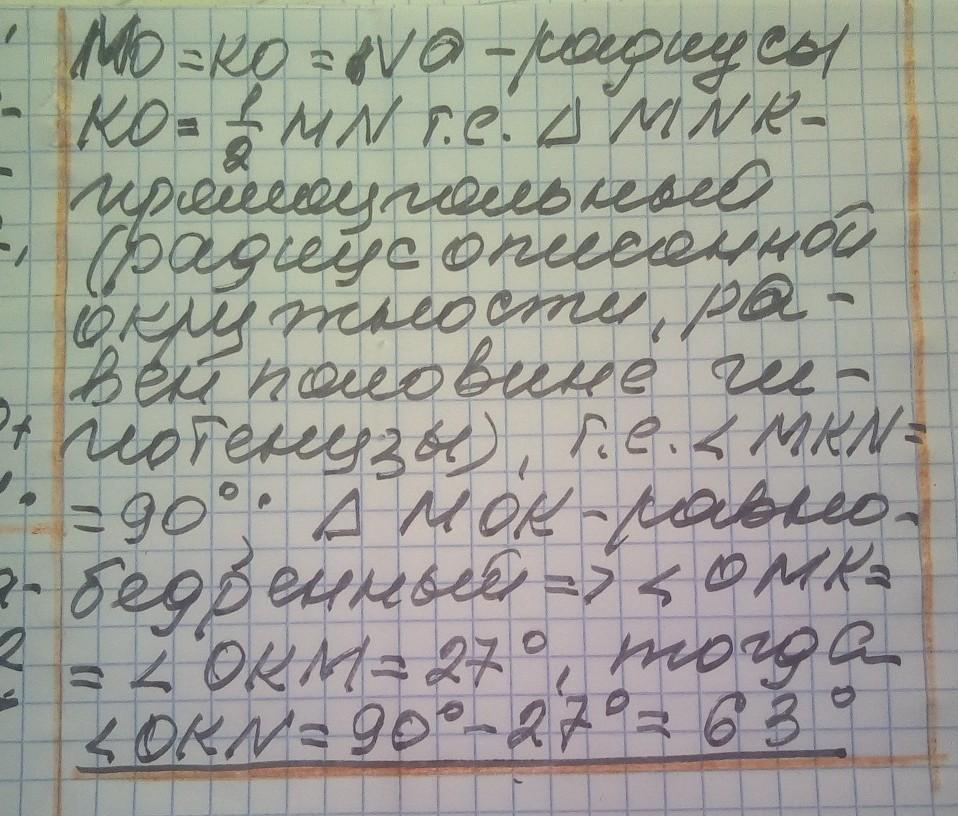 MO = KO = NO - радиусы
KO = 1/2 MN т.е. Δ MNK -
прямоугольный
(радиус описанной
окружности, ра-
вен половине ги-
потенузы), т.е. < MKN =
= 90°; Δ MOK - равно-
бедренный => < OMK =
= < OKM = 27°, тогда
< OKN = 90° - 27° = 63°